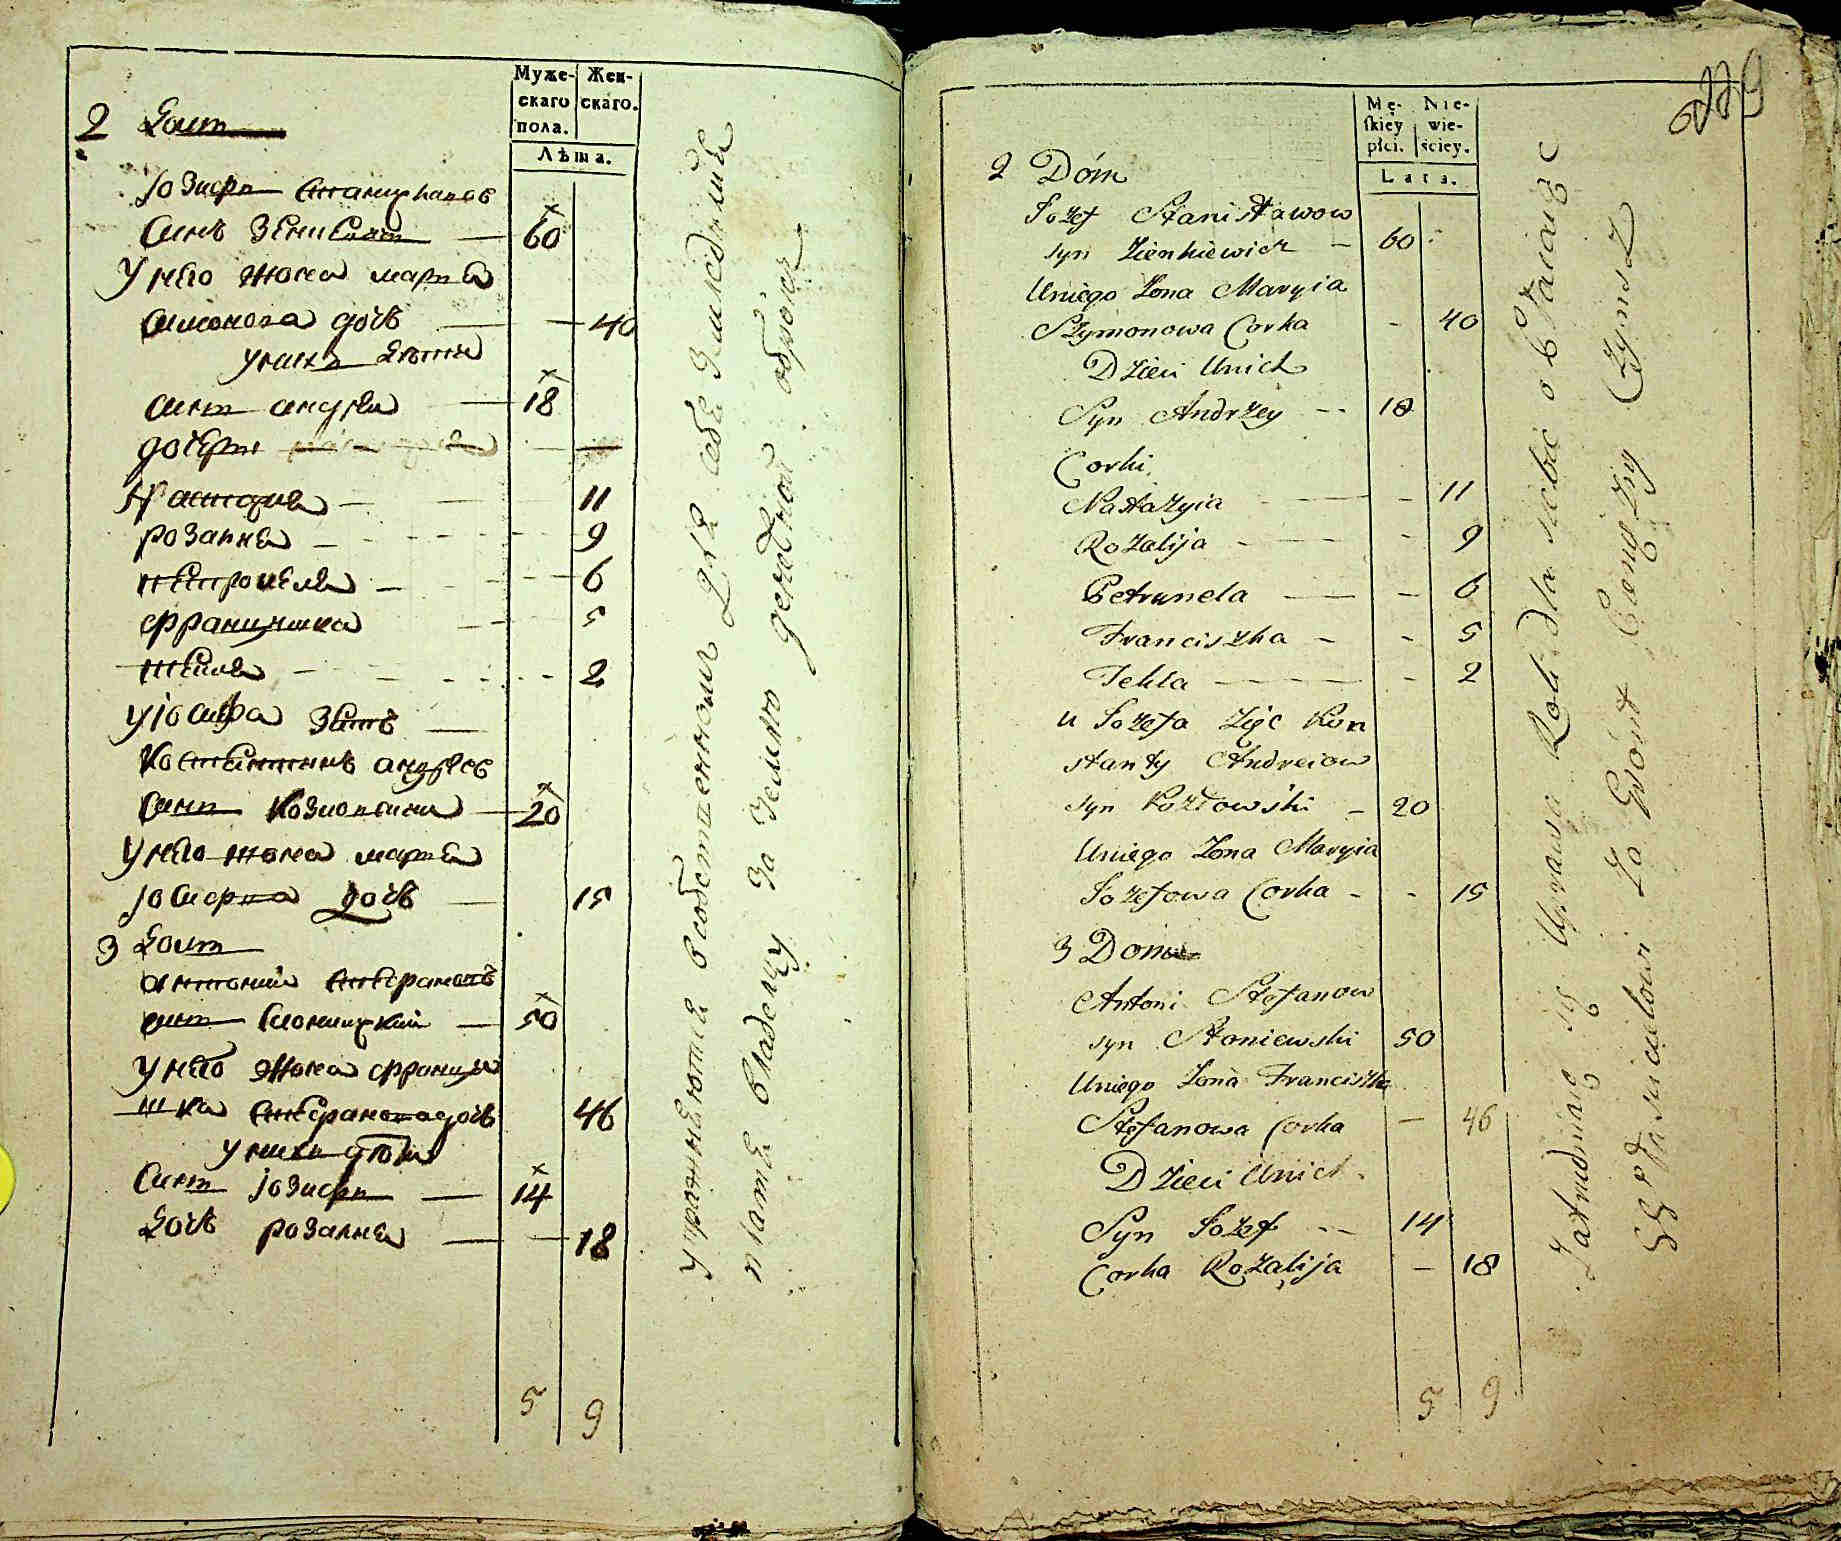 Муже-
скаго
пола.
Жен-
скаго.
Лѣта.
2 Домъ
Іозифъ Станиславовъ
Сынъ Зенкевичъ — 60
У него жона марья
симонова дочь — 40
У нихъ дѣти
Сынъ андрей — 18
дочери
Настазия — 11
розалия — 9
петронеля — 6
францишка — 5
текля — 2
У іозифа зять
Костантинъ андреев
Сынъ Козловски — 20
У него жона марья
іозифова дочь — 15
3 Домъ
антоний Стефановъ
сынъ — 50
У него жона францы
шка Стефановa дочь 46
У нихъ дѣти
Сынъ іозифъ — 14
Дочь розалия — 18
5 9
упражняются въ собственномъ для себя земледелии
платя владельцу за землю денежной оброкъ
Mę-
skiey
płci.
Nie-
wie-
ściey.
Lata.
2 Dóm
Jozef Stanisławow
syn Zienkiewicz — 60
Uniego Żona Maryia
Szymonowa Corka - 40
Dzieci Unich
Syn Andrzey -- 18
Corki
Nastazyia - 11
Rozalija - 9
Petrunela — 6
Franciszka - 5
Tekla - 2
u Jozefa Zięc Kon
stanty Andreiow
syn Kozłowski - 20
Uniego Żona Maryia
Jozefowa Corka - 15
3 Dom
Antoni Stefanow
syn Stoniewski 50
Uniego Żona Franciszka
Stefanowa Corka — 46
Dzieci Unich
Syn Jozef -- 14
Corka Rozalija — 18
5 9
Zatrudnię się Uprawą Roli dla siebie opłaciąc
Właścicielowi Za Grónt Pieniężny Czynsz